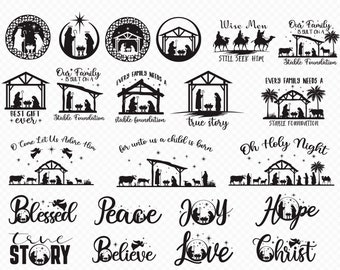 Wise Men
STILL SEEK HIM
Our Family
IS BUILT ON A
Stable Foundation
BEST GIFT
ever
Our Family
IS BUILT ON A
Stable Foundation
EVERY FAMILY NEEDS A
stable foundation
true story
EVERY FAMILY NEEDS A
STABLE FOUNDATION
O Come Let Us Adore Him
for unto us a child is born
Oh Holy Night
Blessed
Peace
Joy
Hope
True
STORY
Believe
Love
Christ